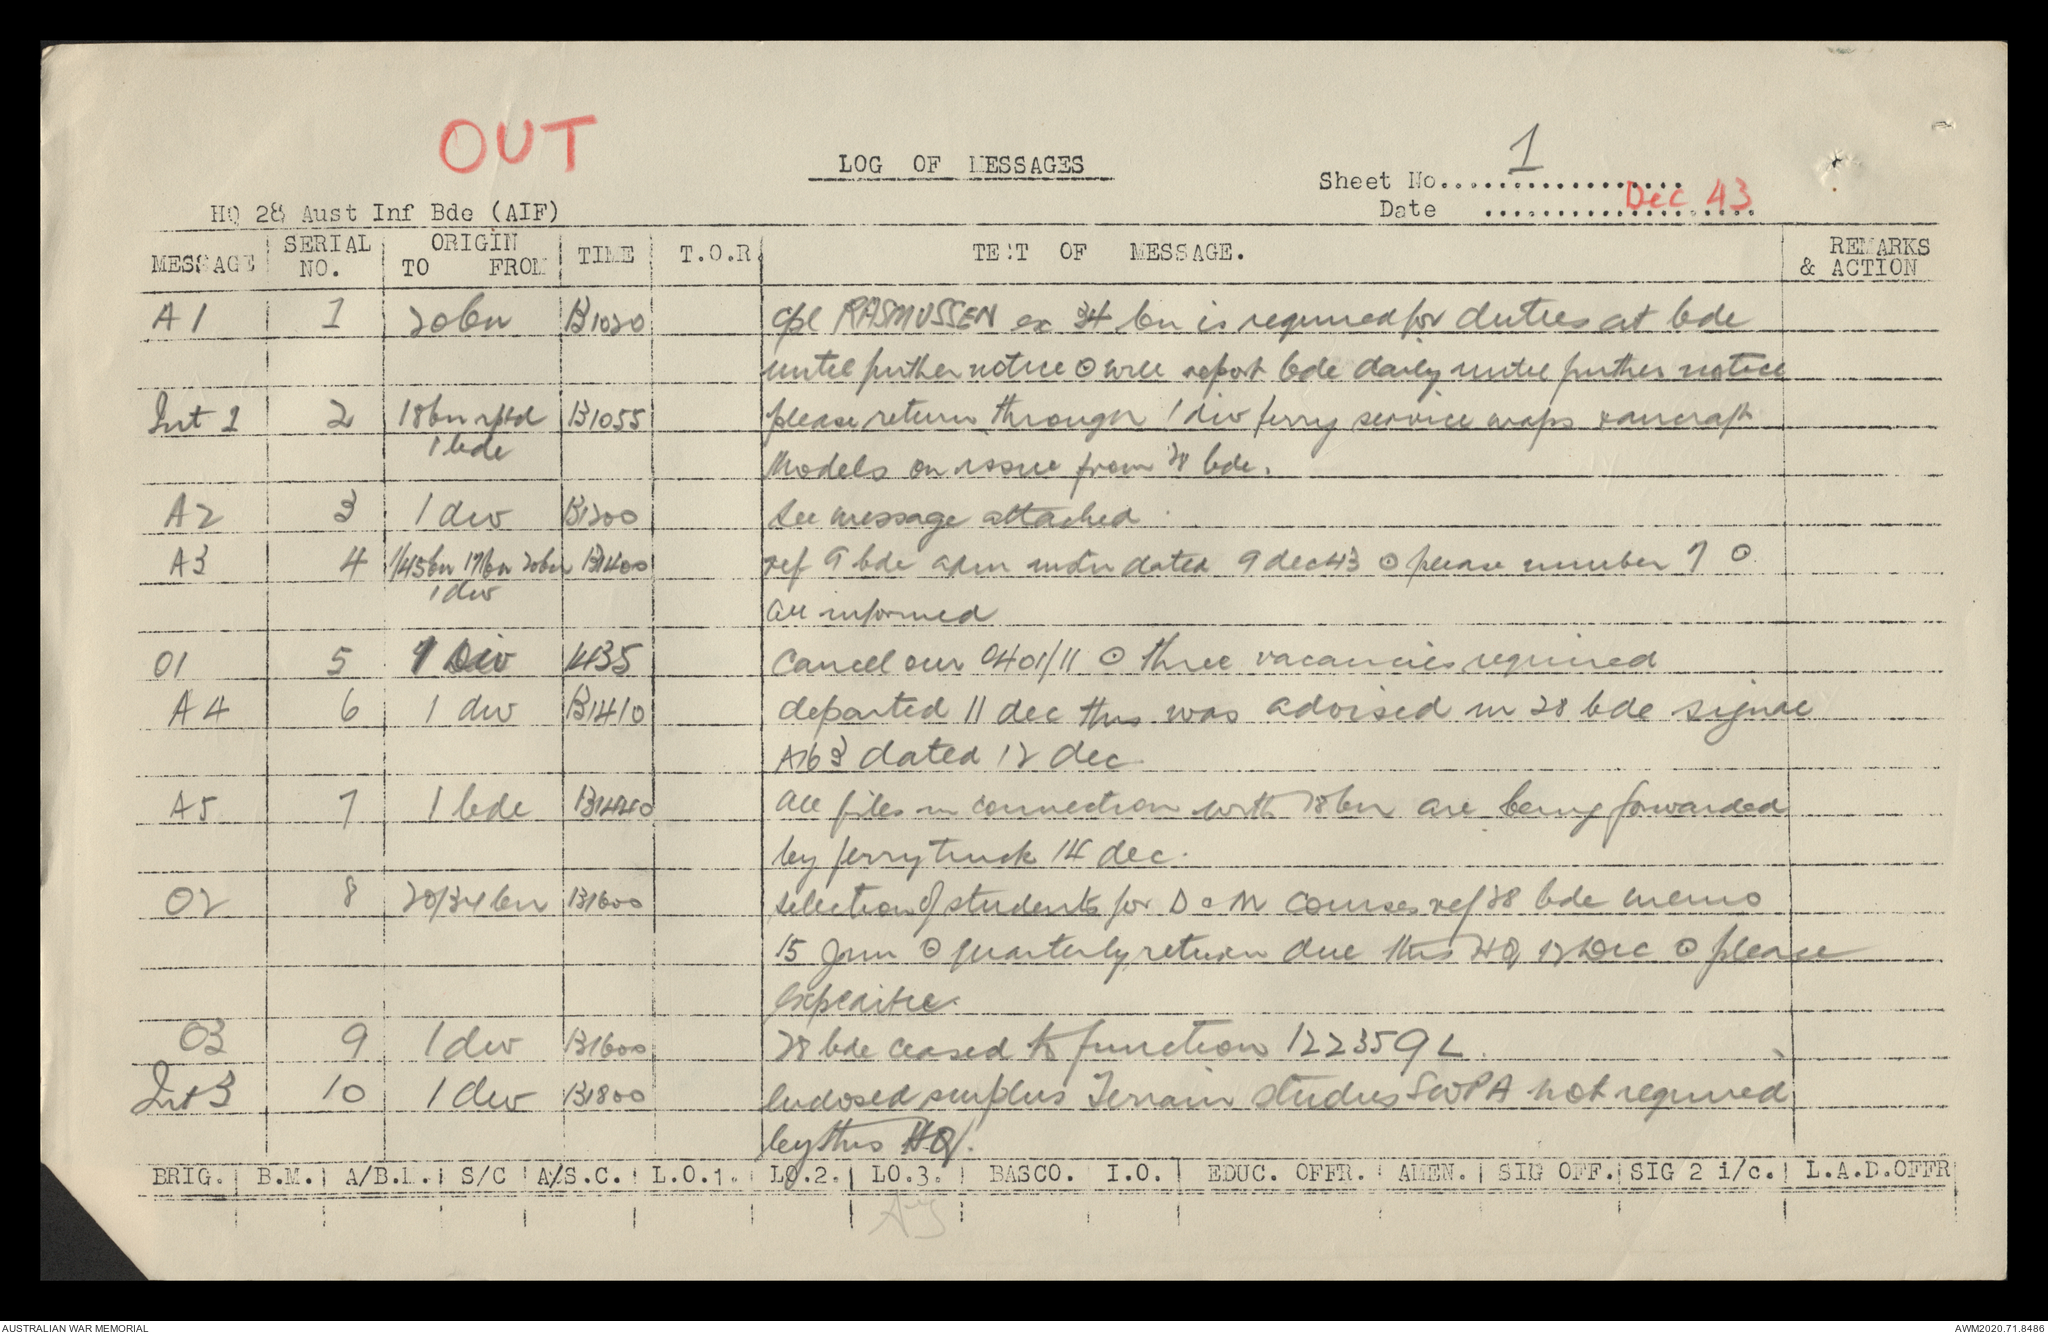 OUT
LOG OF MESSAGES
Sheet No. 1
HQ 28 Aust Inf Bde (AIF)
Date Dec 43
MESSAGE SERIAL NO. ORIGIN TO FROM TIME T.O.R. TEXT OF MESSAGE. REMARKS & ACTION
A1 1 20bn B1020 Cpl RASMUSSEN ex 34 bn is required for duties at bde
until further notice ⊙ will report bde daily until further notice
Int 1 2 18bn rptd B1055 please return through 1 div ferry service maps & aircraft
1 bde
Models on issue from 28 bde.
A2 3 1 div B1200 See message attached
A3 4 1/45bn 17bn 20bn B1400 ref 9 bde adm instn dated 9 dec 43 ⊙ please number 7 ⊙
1 div
all informed
O1 5 1 Div 1435 Cancel our 0401/11 ⊙ three vacancies required
A4 6 1 div B1410 departed 11 dec this was advised in 28 bde signal
A163 dated 12 dec
A5 7 1 bde B1440 all files in connection with 18bn are being forwarded
by ferry truck 14 dec.
O2 8 20/34 bn B1600 selection of students for D & M courses ref 28 bde memo
15 Jun ⊙ quarterly return due this HQ 12 Dec ⊙ please
expedite.
O3 9 1 div B1600 28 bde ceased to function 122359L.
Int 3 10 1 div B1800 Enclosed surplus Terrain studies SWPA not required
by this HQ.
BRIG. B.M. A/B.M. S/C A/S.C. L.O.1. LO.2. LO.3. BASCO. I.O. EDUC. OFFR. AMEN. SIG OFF. SIG 2 i/c. L.A.D.OFFR
AUSTRALIAN WAR MEMORIAL AWM2020.71.8486